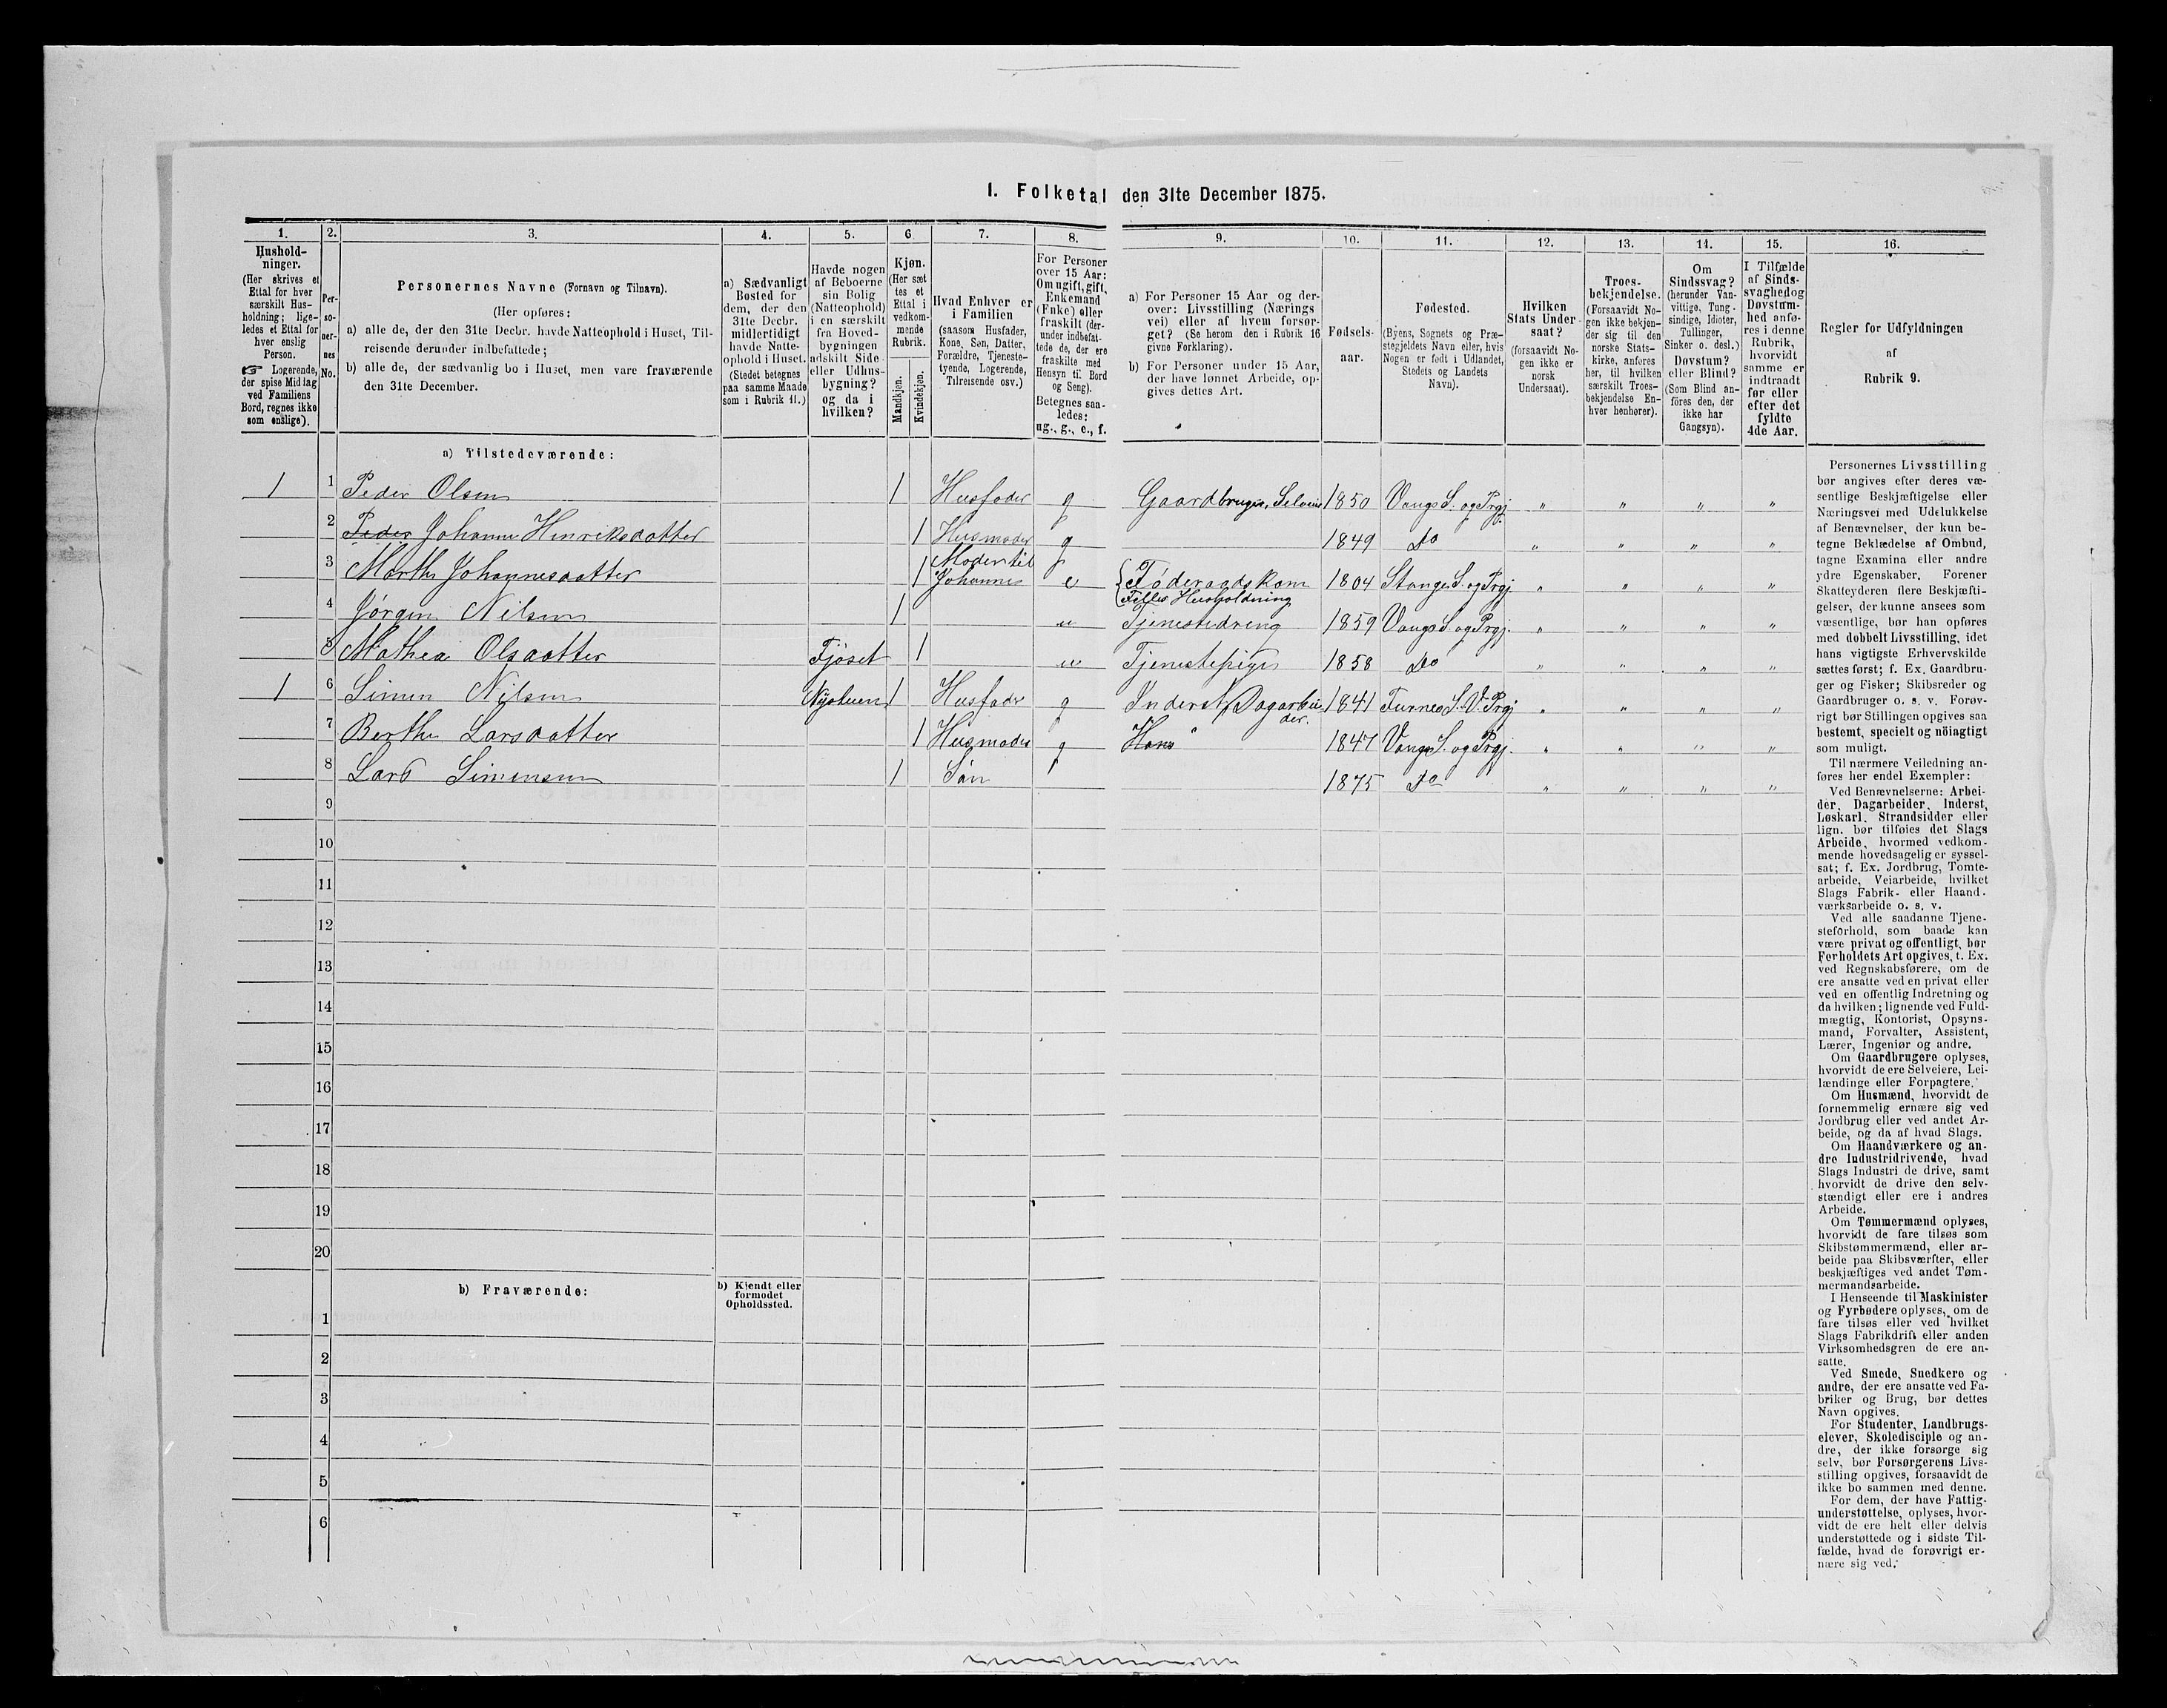 I. Folketal den 31te December 1875.
1. 2. 3. 4. 5. 6. 7. 8. 9. 10. 11. 12. 13. 14. 15. 16.
Hushold-
ninger.
(Her skrives et
Ettal for hver
særskilt Hus-
holdning; lige-
ledes et Ettal for
hver enslig
Person.
☞ Logerende,
der spise Middag
ved Familiens
Bord, regnes ikke
som enslige).
Per-
so-
ner-
nes
No.
Personernes Navne (Fornavn og Tilnavn).
(Her opføres:
a) alle de, der den 31te Decbr. havde Natteophold i Huset, Til-
reisende derunder indbefattede;
b) alle de, der sædvanlig bo i Huset, men vare fraværende
den 31te December.
a) Sædvanligt
Bosted for
dem, der den
31te Decbr.
midlertidigt
havde Natte-
ophold i Huset.
(Stedet betegnes
paa samme Maade
som i Rubrik 11.)
Havde nogen
af Beboerne
sin Bolig
(Natteophold)
i en særskilt
fra Hoved-
bygningen
adskilt Side-
eller Udhus-
bygning?
og da i
hvilken?
Kjøn.
(Her sæt
tes et
Ettal i
vedkom-
mende
Rubrik.
Mandkjøn.
Kvindekjøn.
Hvad Enhver er
i Familien
(saasom Husfader,
Kone, Søn, Datter,
Forældre, Tjeneste-
tyende, Logerende,
Tilreisende osv.)
For Personer
over 15 Aar:
Om ugift, gift,
Enkemand
(Enke) eller
fraskilt (der-
under indbefat-
tede de, der ere
fraskilte med
Hensyn til Bord
og Seng).
Betegnes saa-
ledes:
ug., g., e., f.
a) For Personer 15 Aar og der-
over: Livsstilling (Nærings
vei) eller af hvem forsør-
get? (Se herom den i Rubrik 16
givne Forklaring).
b) For Personer under 15 Aar,
der have lønnet Arbeide, op-
gives dettes Art.
Fødsels-
aar.
Fødested.
(Byens, Sognets og Præ-
stegjeldets Navn eller, hvis
Nogen er født i Udlandet,
Stedets og Landets
Navn).
Hvilken
Stats Under-
saat?
(forsaavidt No-
gen ikke er
norsk
Undersaat).
Troes-
bekjendelse.
(Forsaavidt No-
gen ikke bekjen-
der sig til den
norske Stats-
kirke, anføres
her, til hvilken
særskilt Troes-
bekjendelse En-
hver henhører).
Om
Sindssvag?
(herunder Van-
vittige, Tung-
sindige, Idioter,
Tullinger,
Sinker o. desl.)
Døvstum?
eller Blind?
(Som Blind an-
føres den, der
ikke har
Gangsyn).
I Tilfælde
af Sinds-
svaghed og
Døvstum-
hed anfø-
res i denne
Rubrik,
hvorvidt
samme er
indtraadt
før eller
efter det
fyldte
4de Aar.
Regler for Udfyldningen
af
Rubrik 9.
a) Tilstedeværende:
1 1 Peder Olsen 1 Husfader g Gaardbruger, Selveier 1850 Vangs S. og Prgj. " " " "
2 Peder Johanne Henriksdatter 1 Husmoder g 1849 Do " " " "
3 Marthe Johannesdatter 1 Moder til Johannes e Føderaadskone 1804 Stange S. og Prgj. " " " "
Felles Husholdning
4 Jørgen Nilsen 1 Tjenestedreng 1859 Vangs S. og Prgj. " " " "
5 Mathea Olsdatter Fjøset 1 Tjenestepige 1858 Do " " " "
1 6 Simen Nilsen Nystuen 1 Husfader g Inderst, Dagarbeider. 1841 Furnes S. V. Prgj " " " "
7 Berthe Larsdatter 1 Husmoder g 1847 Vangs S. og Prgj. " " " "
8 Lars Simensen 1 Søn 1875 Do " " " "
9
10
11
12
13
14
15
16
17
18
19
20
b) Fraværende:
b) Kjendt eller
formodet
Opholdssted.
1
2
3
4
5
6
Personernes Livsstilling
bør angives efter deres væ-
sentlige Beskjæftigelse eller
Næringsvei med Udelukkelse
af Benævnelser, der kun be-
tegne Beklædelse af Ombud,
tagne Examina eller andre
ydre Egenskaber. Forener
Skatteyderen flere Beskjæfti-
gelser, der kunne ansees som
væsentlige, bør han opføres
med dobbelt Livsstilling, idet
hans vigtigste Erhvervskilde
sættes først; f. Ex. Gaardbru-
ger og Fisker; Skibsreder og
Gaardbruger o. s. v. Forøv-
rigt bør Stillingen opgives saa
bestemt, specielt og nöiagtigt
som muligt.
Til nærmere Veiledning an-
føres her endel Exempler:
Ved Benævnelserne: Arbei-
der, Dagarbeider, Inderst,
Løskarl, Strandsidder eller
lign. bør tilføies det Slags
Arbeide, hvormed vedkom-
mende hovedsagelig er syssel-
sat; f. Ex. Jordbrug, Tomte-
arbeide, Veiarbeide, hvilket
Slags Fabrik- eller Haand-
værksarbeide o. s. v.
Ved alle saadanne Tjene-
steforhold, som baade kan
være privat og offentligt, bør
Forholdets Art opgives, t. Ex.
ved Regnskabsførere, om de
ere ansatte ved en privat eller
ved en offentlig Indretning og
da hvilken; lignende ved Fuld-
mægtig, Kontorist, Opsyns-
mand, Forvalter, Assistent,
Lærer, Ingeniør og andre.
Om Gaardbrugere oplyses,
hvorvidt de ere Selveiere, Lei-
lændinge eller Forpagtere.
Om Husmænd, hvorvidt de
fornemmelig ernære sig ved
Jordbrug eller ved andet Ar-
beide, og da af hvad Slags.
Om Haandværkere og an-
dre Industridrivende, hvad
Slags Industri de drive, samt
hvorvidt de drive den selv-
stændigt eller ere i andres
Arbeide.
Om Tømmermænd oplyses,
hvorvidt de fare tilsøs som
Skibstømmermænd, eller ar-
beide paa Skibsværfter, eller
beskjæftiges ved andet Tøm-
mermandsarbeide.
I Henseende til Maskinister
og Fyrbødere oplyses, om de
fare tilsøs eller ved hvilket
Slags Fabrikdrift eller anden
Virksomhedsgren de ere an-
satte.
Ved Smede, Snedkere og
andre, der ere ansatte ved Fa-
briker og Brug, bør dettes
Navn opgives.
For Studenter, Landbrugs-
elever, Skoledisciple og an-
dre, der ikke forsørge sig
selv, bør Forsørgerens Livs-
stilling opgives, forsaavidt de
ikke bo sammen med denne.
For dem, der have Fattig-
understøttelse, oplyses, hvor-
vidt de ere helt eller delvis
understøttede og i sidste Til-
fælde, hvad de forøvrigt er-
nære sig ved.